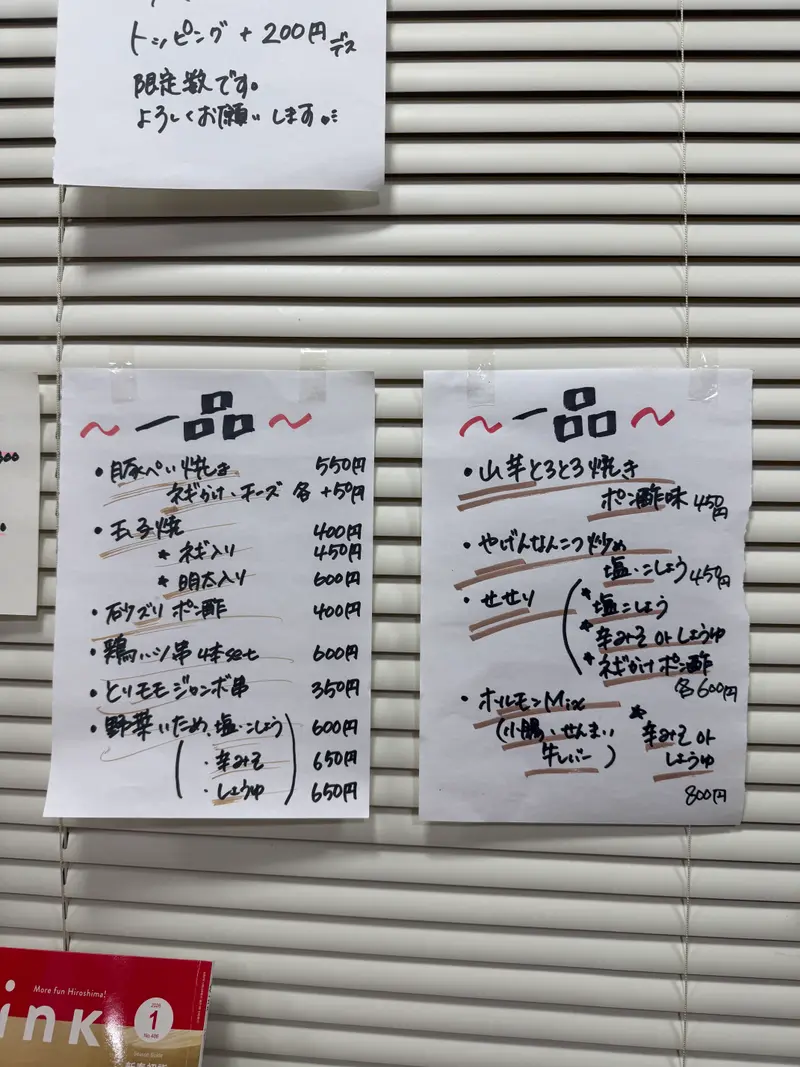 トッピング + 200円デス
限定数です。
よろしくお願いします。
～一品～
・豚ぺい焼き 550円
ネギかけ・チーズ 各 +50円
・玉子焼 400円
* ネギ入り 450円
* 明太入り 600円
・砂ズリ ポン酢 400円
・鶏ハツ串 4本set 600円
・とりモモジャンボ串 350円
・野菜いため、塩・こしょう 600円
・辛みそ 650円
・しょうゆ 650円
～一品～
・山芋とろとろ焼き
ポン酢味 450円
・やげんなんこつ炒め
塩・こしょう 450円
・せせり
* 塩こしょう
* 辛みそ or しょうゆ
* ネギかけ ポン酢
各600円
・ホルモンMix
(小腸・せんまい
牛レバー)
* 辛みそ or
しょうゆ
800円
More fun Hiroshima!
ink
1